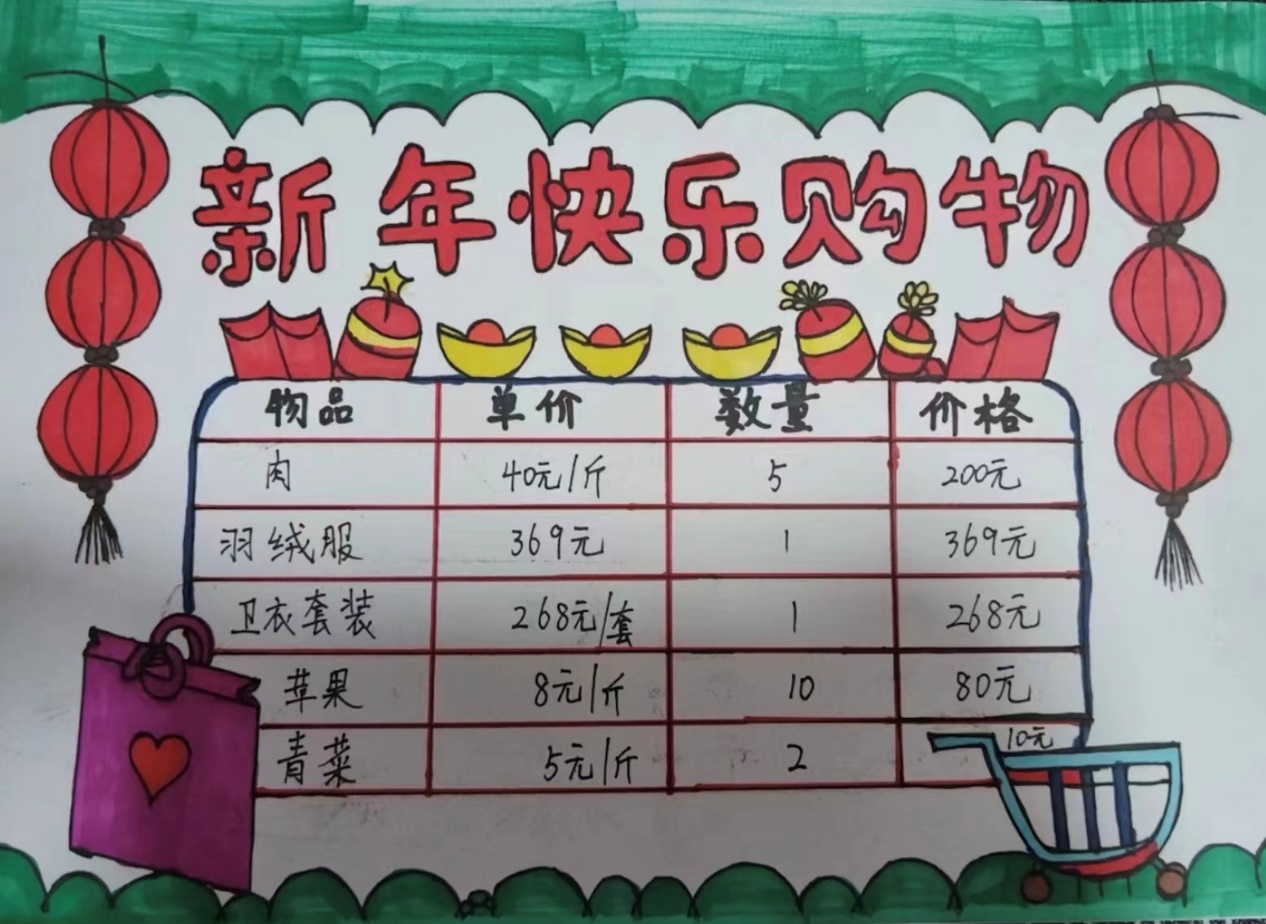 新年快乐购物
物品 单价 数量 价格
肉 40元/斤 5 200元
羽绒服 369元 1 369元
卫衣套装 268元/套 1 268元
苹果 8元/斤 10 80元
青菜 5元/斤 2 10元